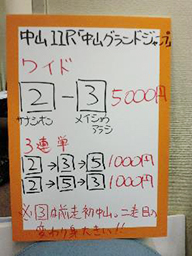 中山11R「中山グランドジャンプ」
ワイド
2 - 3 5000円
サナシオン メイショウアラシ
3連単
2→3→5 1000円
2→5→3 1000円
※3は前走初中山。二走目の
変わり身たのい!!